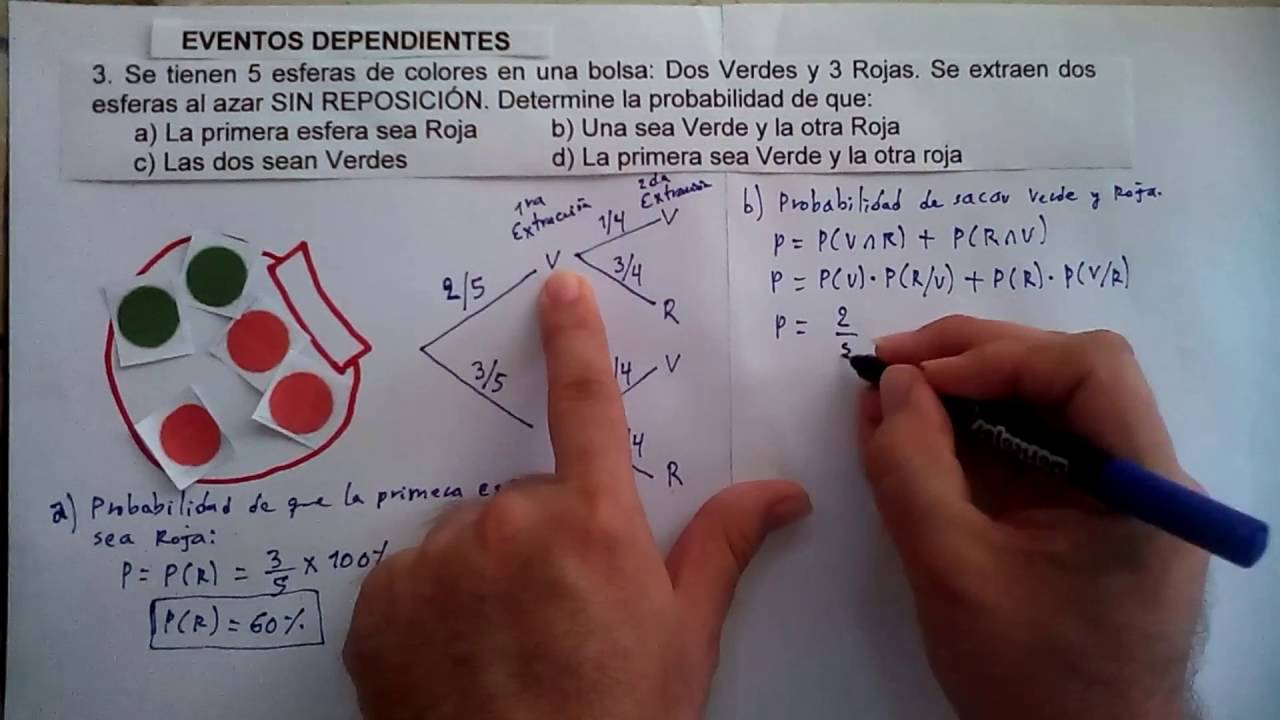 EVENTOS DEPENDIENTES
3. Se tienen 5 esferas de colores en una bolsa: Dos Verdes y 3 Rojas. Se extraen dos
esferas al azar SIN REPOSICIÓN. Determine la probabilidad de que:
a) La primera esfera sea Roja
b) Una sea Verde y la otra Roja
c) Las dos sean Verdes
d) La primera sea Verde y la otra roja
1ra
Extracción
2da
Extracción
2/5
V
1/4
V
3/4
R
3/5
/4
V
/4
R
a) Probabilidad de que la primera es
sea Roja:
P = P(R) = 3/5 × 100%
P(R) = 60%
b) Probabilidad de sacar Verde y Roja.
P = P(V∩R) + P(R∩V)
P = P(V)·P(R/V) + P(R)·P(V/R)
P = 2/5